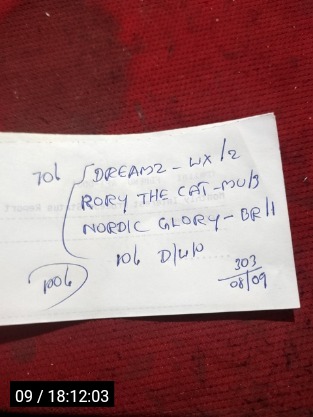 70b DREAMZ - WX/2
RORY THE CAT - MU/3
NORDIC GLORY - BR/1
10b D/U/P
100b
303
08/09
09 / 18:12:03